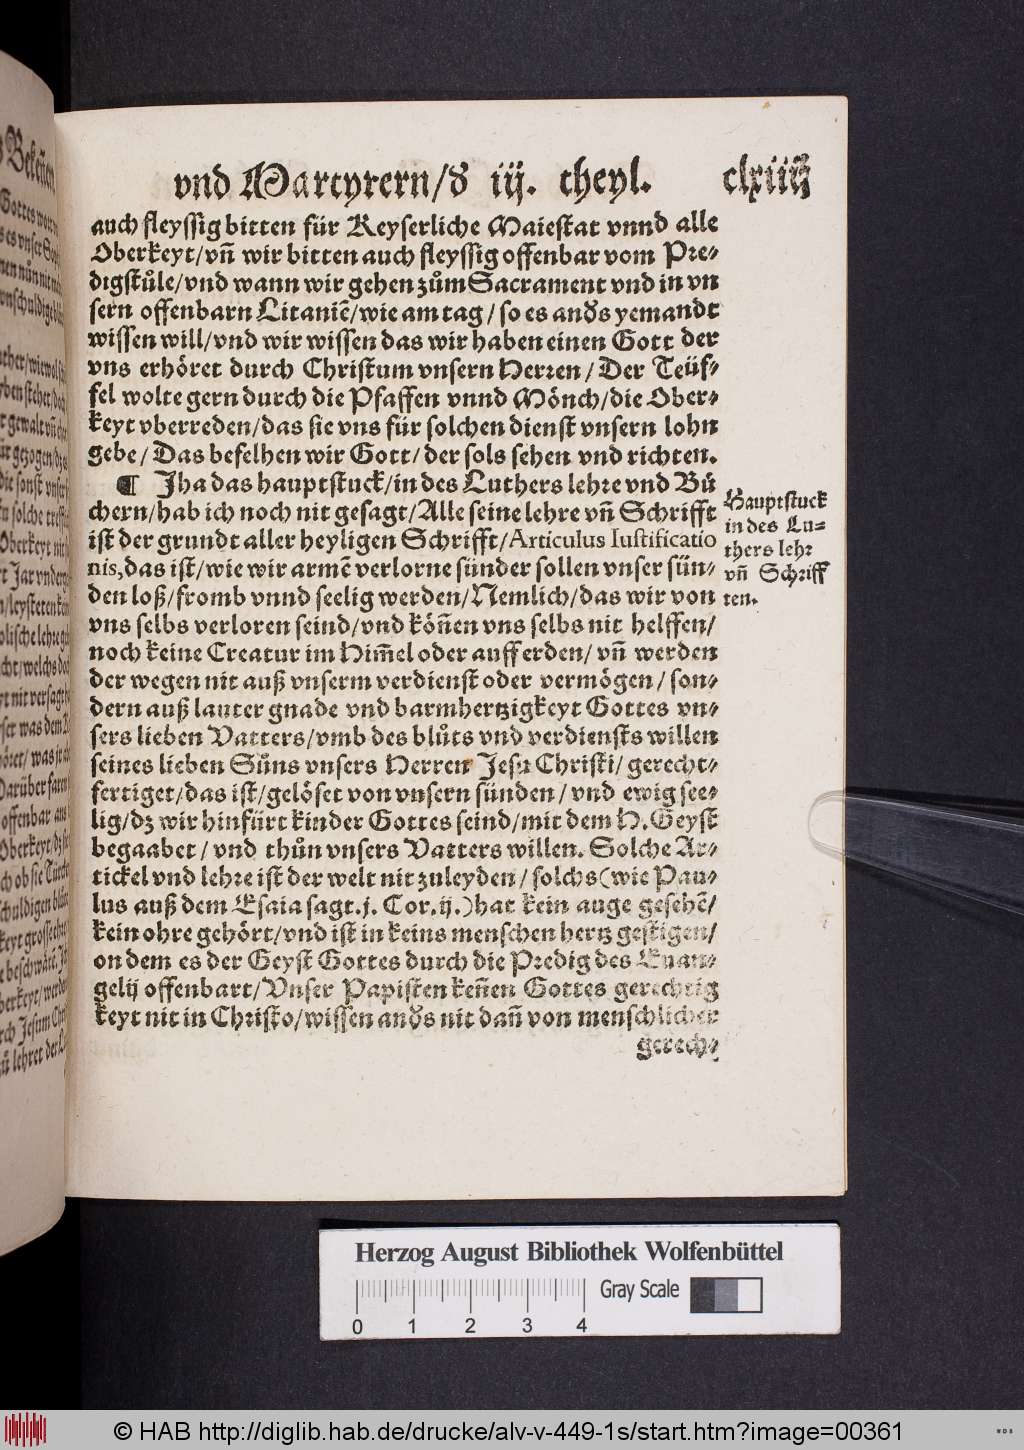 vnd Martyrern/ď iij. theyl. clxiiij
auch fleyssig bitten für Keyserliche Maiestat vnnd alle
Oberkeyt/vñ wir bitten auch fleyssig offenbar vom Pre-
digstůle/vnd wann wir gehen zům Sacrament vnd in vn
sern offenbarn Litaniē/wie am tag/so es anďs yemandt
wissen will/vnd wir wissen das wir haben einen Gott der
vns erhöret durch Christum vnsern Herren/Der Teüf-
fel wolte gern durch die Pfaffen vnnd Mönch/die Ober-
keyt vberreden/das sie vns für solchen dienst vnsern lohn
gebe/Das befelhen wir Gott/der sols sehen vnd richten.
¶ Jha das hauptstuck/in des Luthers lehre vnd Bů
chern/hab ich noch nit gesagt/Alle seine lehre vñ Schrifft
ist der grundt aller heyligen Schrifft/Articulus Iustificatio
nis,das ist/wie wir armē verlorne sünder sollen vnser sün-
den loß/fromb vnnd seelig werden/Nemlich/das wir von
vns selbs verloren seind/vnd köñen vns selbs nit helffen/
noch keine Creatur im Him̄el oder auff erden/vñ werden
der wegen nit auß vnserm verdienst oder vermögen/son-
dern auß lauter gnade vnd barmhertzigkeyt Gottes vn-
sers lieben Vatters/vmb des blůts vnd verdiensts willen
seines lieben Sůns vnsers Herren Jesu Christi/gerecht-
fertiget/das ist/gelöset von vnsern sünden/vnd ewig see-
lig/dz wir hinfürt kinder Gottes seind/mit dem H. Geyst
begaabet/vnd thůn vnsers Vatters willen. Solche Ar-
tickel vnd lehre ist der welt nit zuleyden/solchs(wie Pau-
lus auß dem Esaia sagt.j. Cor.ij.)hat kein auge gesehē/
kein ohre gehört/vnd ist in keins menschen hertz gestigen/
on dem es der Geyst Gottes durch die Predig des Euan-
gelij offenbart/Vnser Papisten keñen Gottes gerechtig
keyt nit in Christo/wissen anďs nit dañ von menschlicher
gerech-
Hauptstuck
in des Lu-
thers lehr
vñ Schriff
ten.
Herzog August Bibliothek Wolfenbüttel
Gray Scale
0 1 2 3 4
© HAB http://diglib.hab.de/drucke/alv-v-449-1s/start.htm?image=00361